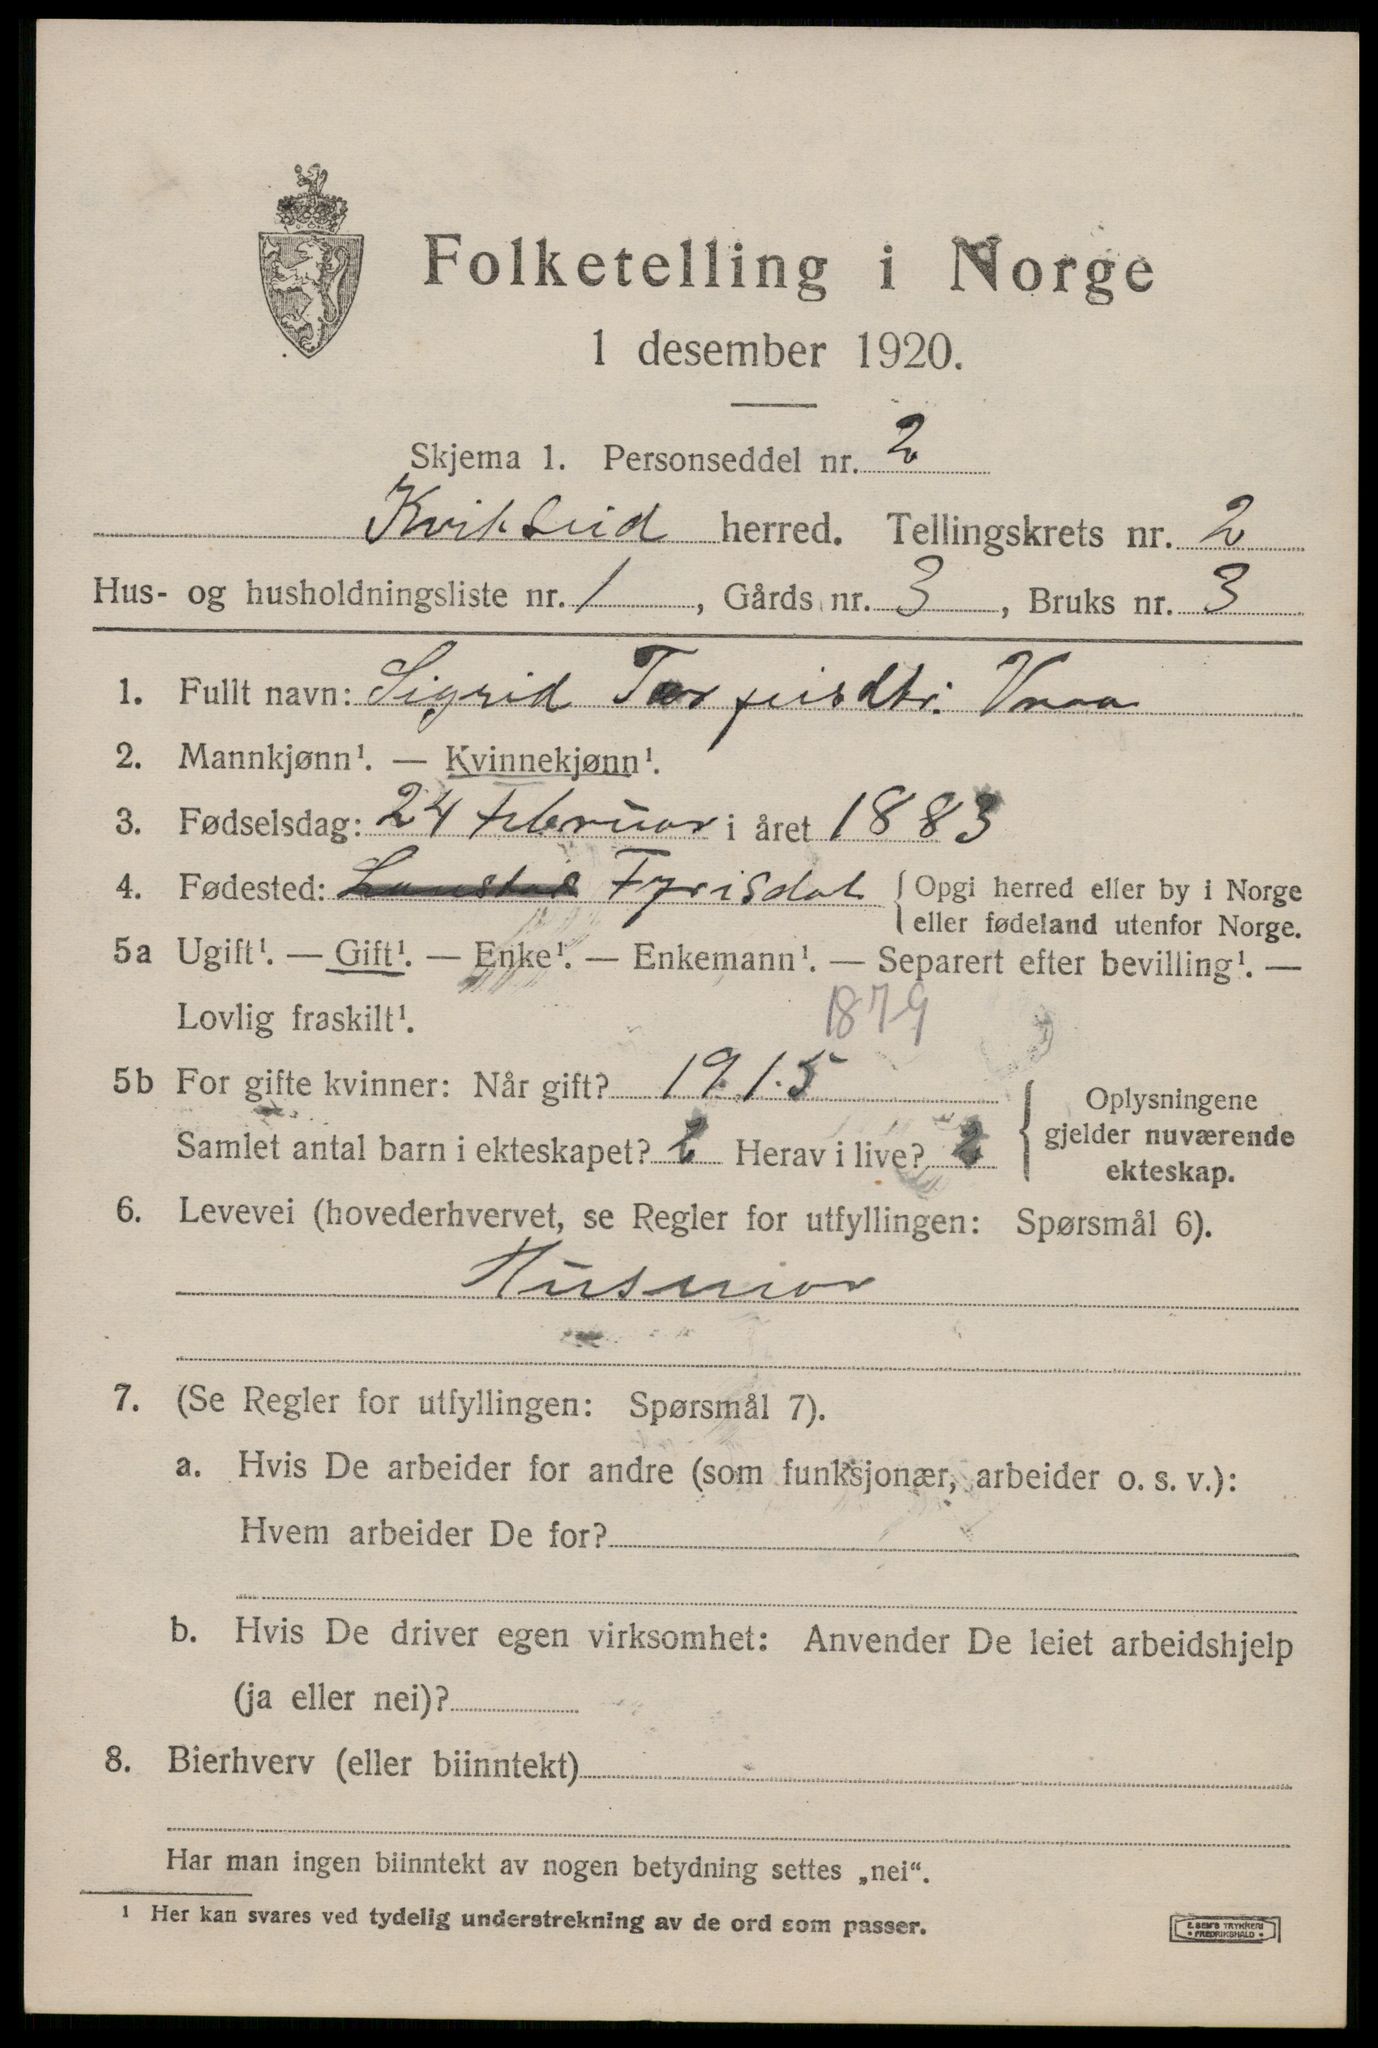 Folketelling i Norge
1 desember 1920.
Skjema 1. Personseddel nr. 2
Kvitseid herred. Tellingskrets nr. 2
Hus- og husholdningsliste nr. 1, Gårds nr. 3, Bruks nr. 3
1. Fullt navn: Sigrid Torfinsdtr. Vraa
2. Mannkjønn¹. — Kvinnekjønn¹.
3. Fødselsdag: 24 februar i året 1883
4. Fødested: Fyrisdal { Opgi herred eller by i Norge
eller fødeland utenfor Norge.
5a Ugift¹. — Gift¹. — Enke¹. — Enkemann¹. — Separert efter bevilling¹. —
Lovlig fraskilt¹. 1879
5b For gifte kvinner: Når gift? 1915
Samlet antal barn i ekteskapet? 2 Herav i live? 2
Oplysningene
gjelder nuværende
ekteskap.
6. Levevei (hovederhvervet, se Regler for utfyllingen: Spørsmål 6).
Husmor
7. (Se Regler for utfyllingen: Spørsmål 7).
a. Hvis De arbeider for andre (som funksjonær, arbeider o. s. v.):
Hvem arbeider De for?
b. Hvis De driver egen virksomhet: Anvender De leiet arbeidshjelp
(ja eller nei)?
8. Bierhverv (eller biinntekt)
Har man ingen biinntekt av nogen betydning settes „nei“.
¹ Her kan svares ved tydelig understrekning av de ord som passer.
E. SEM'S TRYKKERI
• FREDRIKSHALD •